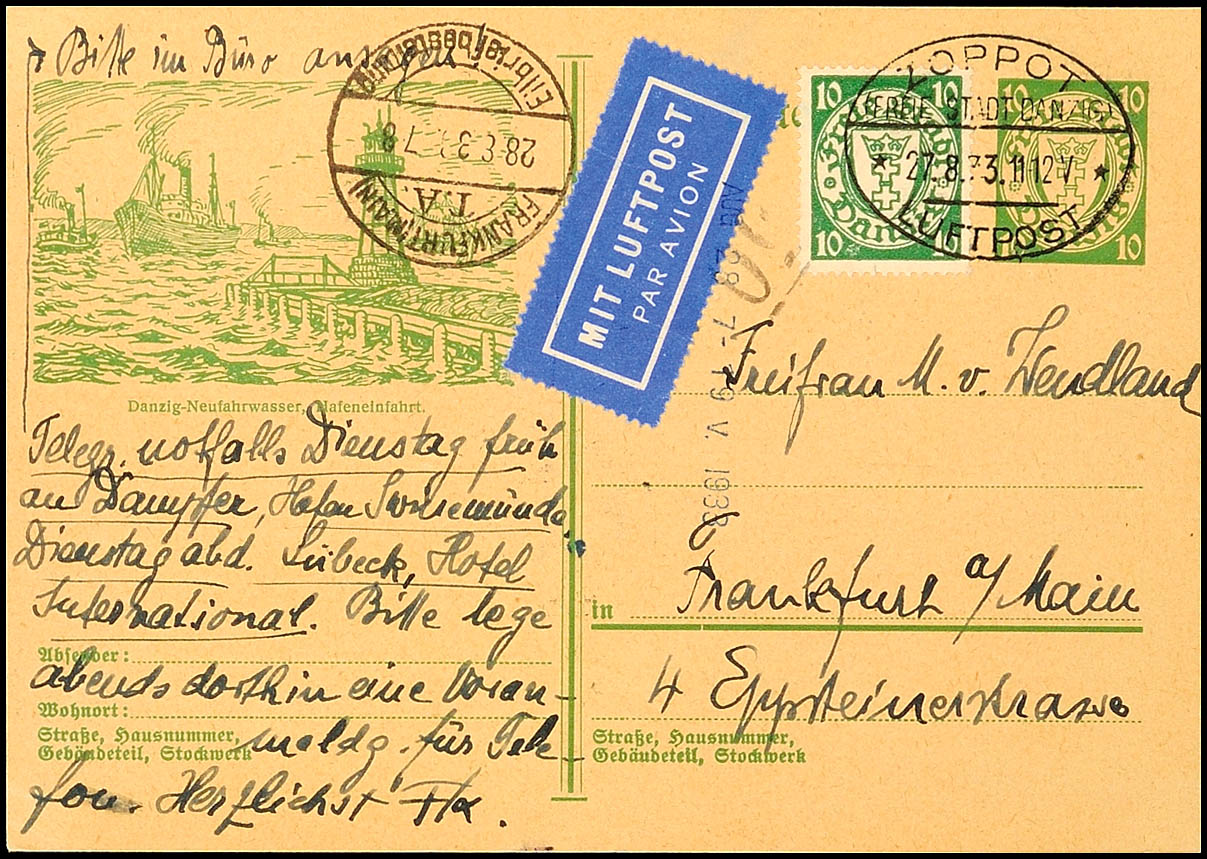 Bitte im Büro
Eilbriefbestellung
28.8.33. 7-8
T.A.
FRANKFURT (MAIN)
Danzig-Neufahrwasser, Hafeneinfahrt.
Telegr. notfalls Dienstag früh
an Dampfer, Hafen Swinemünde
Dienstag abd. Lübeck, Hotel
International. Bitte lege
Absender:
abends dorthin eine Voran-
Wohnort:
meldg. für Tele-
Straße, Hausnummer,
Gebäudeteil, Stockwerk
fon. Herzlichst
MIT LUFTPOST
PAR AVION
10 10
10 10
Danzig
10 10
10
ZOPPOT
(FREIE STADT DANZIG)
* 27.8.33.11-12V *
LUFTPOST
AUG 28 7-9 V. 1933
Freifrau M. v. Wendland
Frankfurt a/Main
in
4 Eppsteinerstrasse
Straße, Hausnummer,
Gebäudeteil, Stockwerk